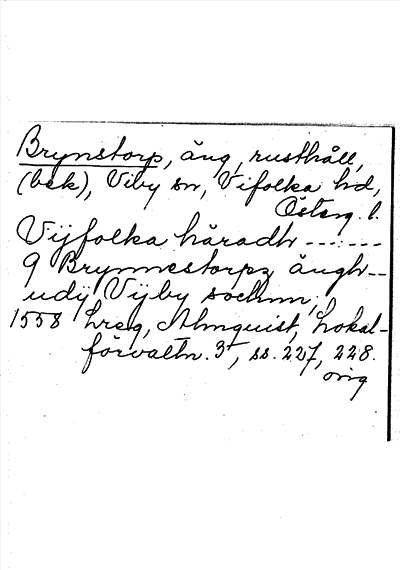 Brynstorp, äng, rusthåll,
(bek), Viby sn, Vifolka hd,
Österg. l.
Vijfolka häradh ------
9 Brynnestorpz ängh--
udij Vijby sochnn,
1558 Lreg, Almquist, Lokal-
förvaltn. 3, ss. 227, 228.
orig